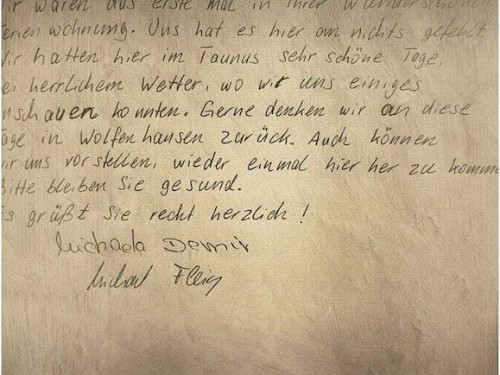 ir waren das erste mal in ihrer wunderschöne
erienwohnung. Uns hat es hier an nichts gefehlt.
ir hatten hier im Taunus sehr schöne Tage,
ei herrlichem Wetter, wo wir uns einiges
nschauen konnten. Gerne denken wir an diese
age in Wolfenhausen zurück. Auch können
ir uns vorstellen, wieder einmal hier her zu komme
Bitte bleiben Sie gesund.
s grüßt Sie recht herzlich!
Michaela Demir
Michael